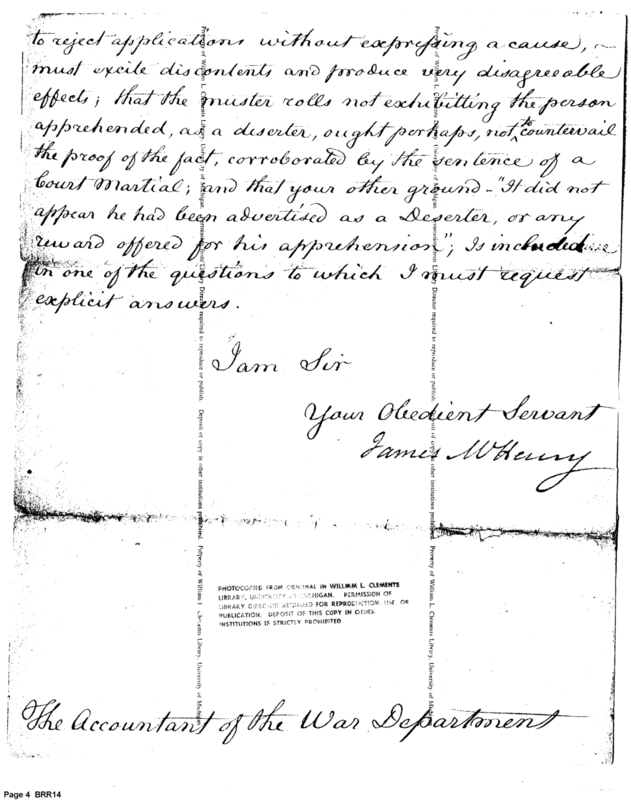 to reject applications without expressing a cause,
must excite discontents and produce very disagreeable
effects; that the muster rolls not exhibitting the person
apprehended, as a deserter, ought perhaps, not to countervail
the proof of the fact, corroborated by the sentence of a
Court Martial; and that your other ground - "It did not
appear he had been advertised as a Deserter, or any
reward offered for his apprehension"; Is included
in one of the questions to which I must request
explicit answers.
I am Sir
Your Obedient Servant
James McHenry
PHOTOCOPIED FROM ORIGINAL IN WILLIAM L. CLEMENTS
LIBRARY, UNIVERSITY OF MICHIGAN. PERMISSION OF
LIBRARY DIRECTOR REQUIRED FOR REPRODUCTION, USE OR
PUBLICATION. DEPOSIT OF THIS COPY IN OTHER
INSTITUTIONS IS STRICTLY PROHIBITED
The Accountant of the War Department
Page 4 BRR14
Director required to reproduce or publish. Deposit of copy in other institutions prohibited. Property of William L. Clements Library, University of Michigan
Director required to reproduce or publish. Deposit of copy in other institutions prohibited. Property of William L. Clements Library, University of